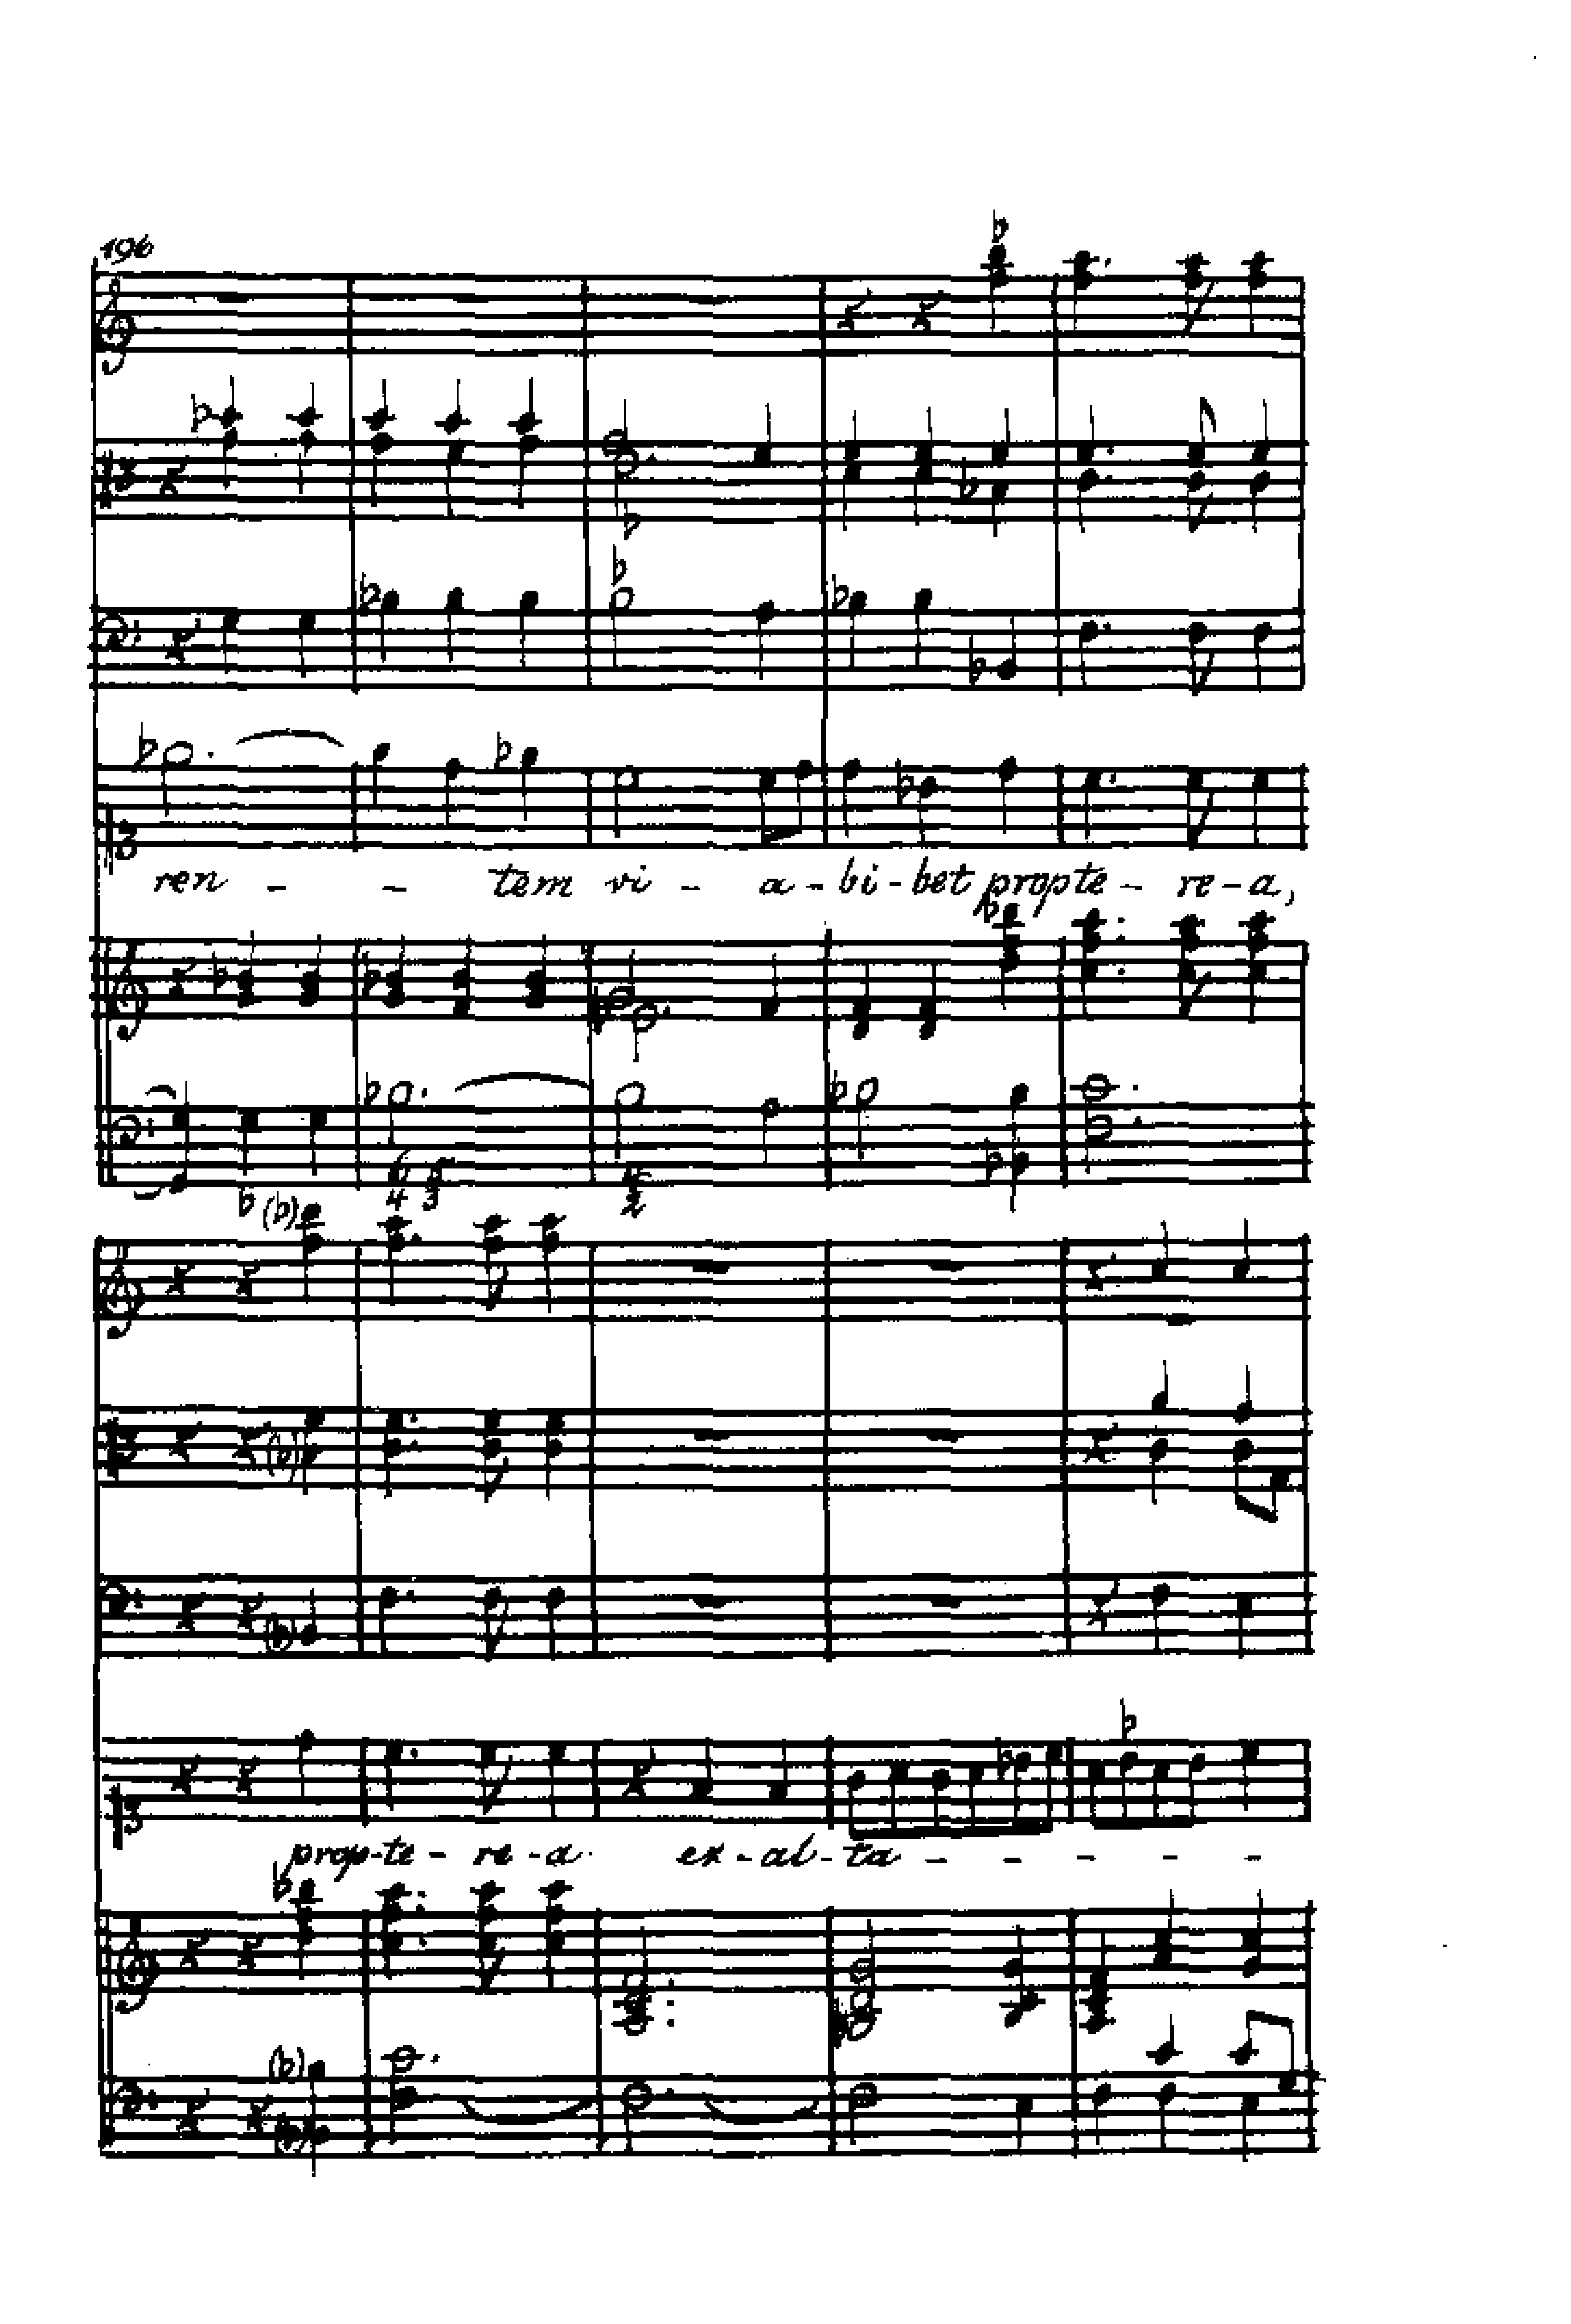 196
ren - - tem vi - a - bi - bet propte - re - a,
6 5 4
4 3 2
prop-te - re - a. ex - al - ta - - - - -